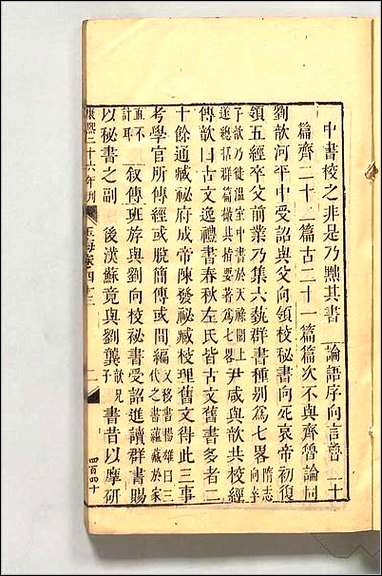 中書校之非是乃黜其書　論語序向言魯二十
篇齊二十二篇古二十一篇篇次不與齊魯論同
劉歆河平中受詔與父向領校秘書向死哀帝初復
領五經卒父前業乃集六蓺群書種別爲七畧隋志向卒
子歆乃徙温室中書於天祿閣上
遂總括群篇撮其指要著爲七畧尹咸與歆共校經
傳歆曰古文逸禮書春秋左氏皆古文舊書多者二
十餘通臧秘府成帝陳發祕臧校理舊文得此三事
考學官所傳經或脫簡傳或間編又移書楊雄曰三
代之書蘊藏於家
直不
計耳　叙傳班斿與劉向校秘書受詔進讀群書賜
以秘書之副　後漢蘇竟與劉龔歆兄
子書昔以摩研
康熙二十六年刊　玉海卷四十三　二　四百四十